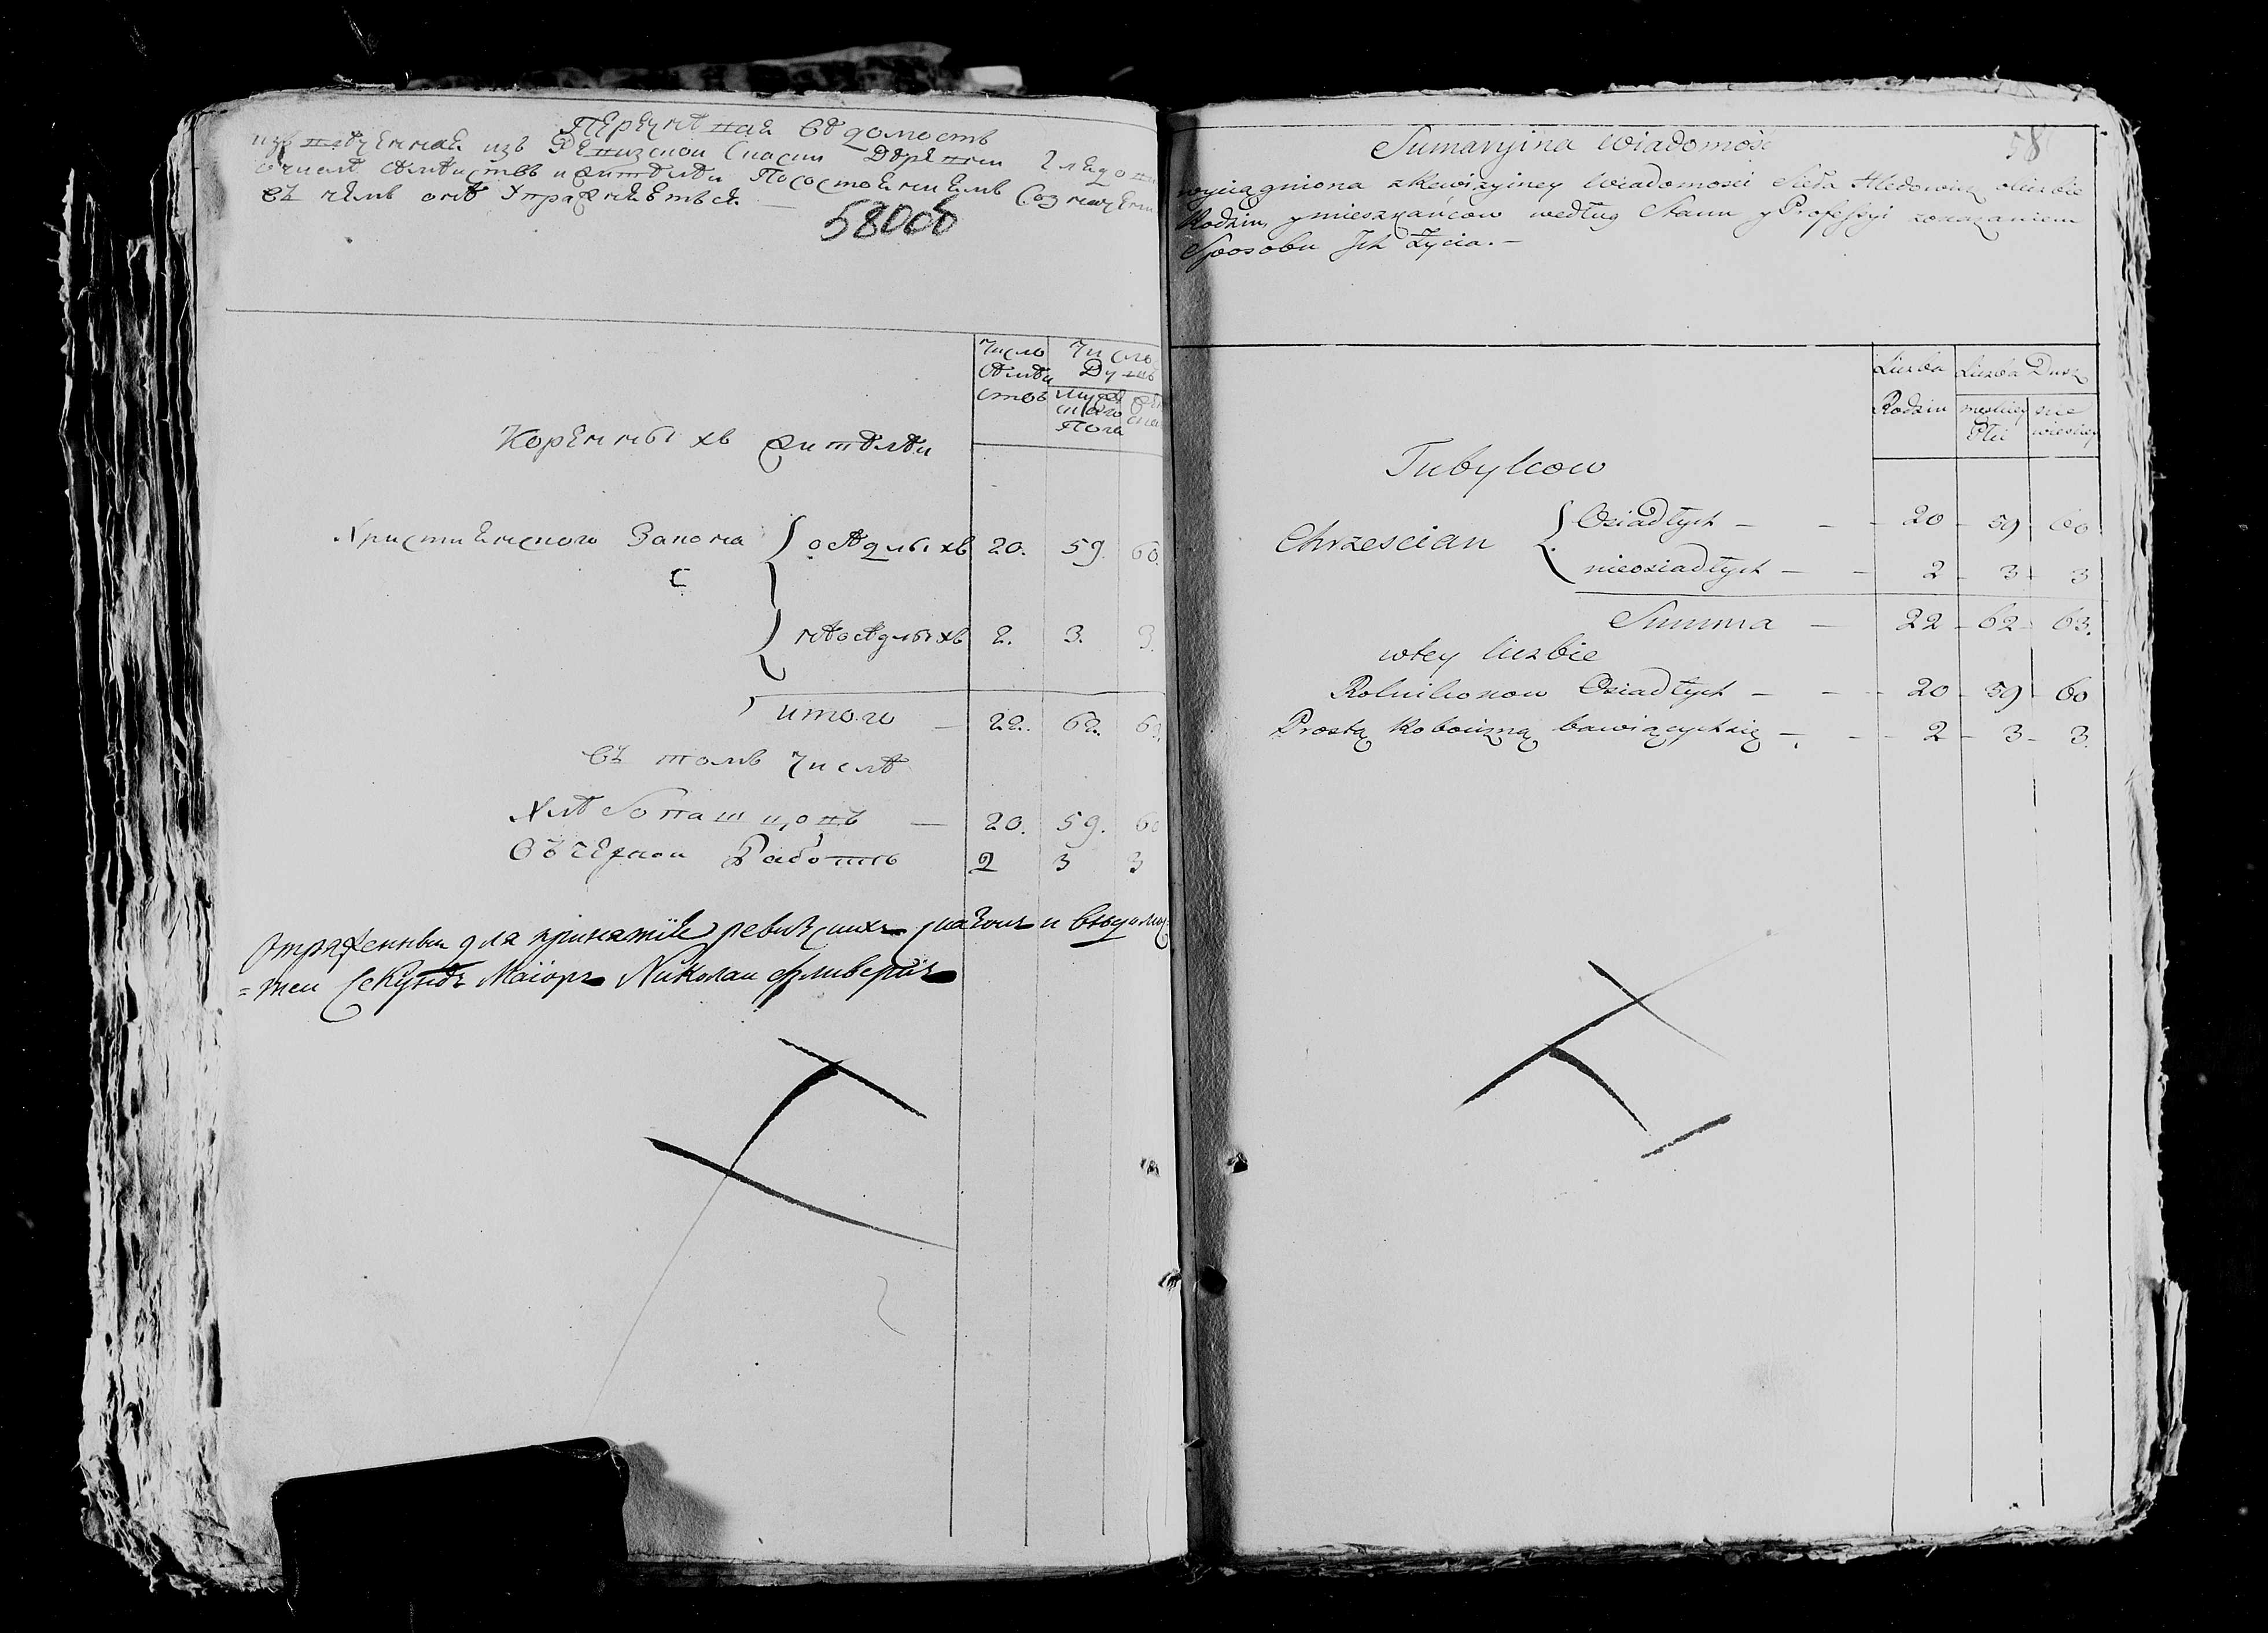 Перечневая ведомость
извлеченная изъ Ревизской Сказки Деревни
о числе семействъ и жителей По состояниямъ Со значением
въ чемъ оне Упражняются. —
58об
Число Семей ствъ
Число Душъ
мужеска го Пола
Коренныхъ жителей
Християнского Закона { оседлыхъ 20. 59. 60.
неоседлыхъ 2. 3. 3.
итого — 22. 62. 63.
въ томъ числе
Хлебопашцовъ — 20. 59. 60
Въ черной Работе 2 3 3
отряженный для принятия ревизскихъ сказокъ и ведомос
=тей Секундъ Маiоръ Николай
58
Sumaryina Wiadomość
wyciągniona z Rewizyiney Wiadomosci Sieła Hledowicz o liczbie
Rodzin, y mieszkańcow według Stanu y Professyi z okazaniem
Sposobu Jch Życia. —
Liczba Rodzin
Liczba Dusz
męskiey Płci
nie wieskiey
Tubylcow
Chrzescian { Osiadłych — — 20 — 59 — 60
nieosiadłych — — 2 — 3 — 3
Summa — 22 — 62 — 63.
w tey liczbie
Rolnikonow Osiadłych — — 20 — 59 — 60
Prostą Robocizną bawiących się — — 2 — 3 — 3.